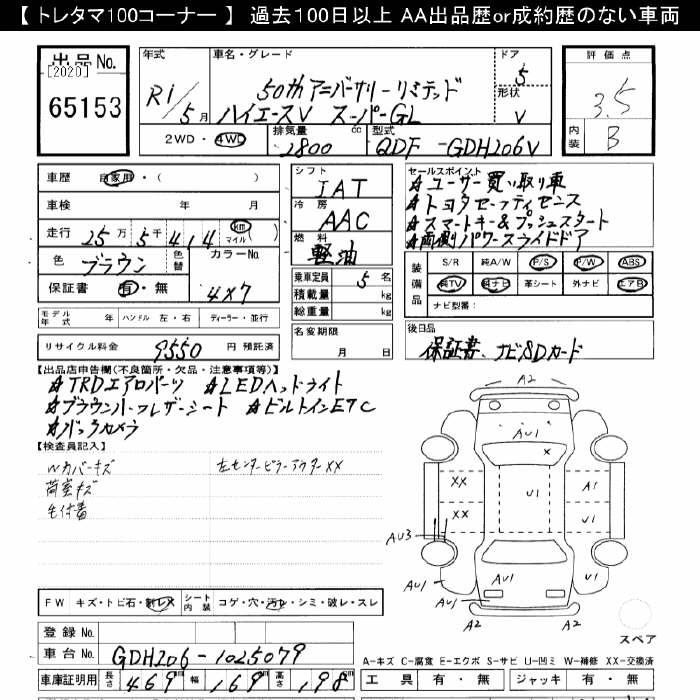 【 トレタマ100コーナー 】 過去100日以上 AA出品歴or成約歴のない車両
出品No.
[2020]
65153
年式
R1/5月
車名・グレード
50thアニバーサリーリミテッド
ハイエースV スーパーGL
ドア
5
形状
V
2WD・4WD
排気量
2800 cc
型式
QDF-GDH206V
評価点
3.5
内装
B
車歴 自家用・( )
車検 年 月
走行 25万5千414 km マイル )
色 ブラウン 色替
カラーNo.
4X7
保証書 有・無
シフト
IAT
冷房
AAC
燃料
軽油
乗車定員 5名
積載量 kg
総重量 kg
セールスポイント
★ユーザー買い取り車
★トヨタセーフティセンス
★スマートキー&プッシュスタート
★両側パワースライドドア
装備品
S/R 純A/W P/S P/W ABS
純TV 純ナビ 革シート 外ナビ エアB
ナビ型番:
モデル年式 年 ハンドル 左・右 ディーラー・並行
リサイクル料金 9550 円 預託済
名変期限
月 日
後日品
保証書、ナビSDカード
【出品店申告欄(不良箇所・欠品・注意事項等)】
★TRDエアロパーツ ★LEDヘッドライト
★ブラウンハーフレザーシート ★ビルトインETC
★バックカメラ
【検査員記入】
Wカバーキズ
左センターピラーアウターXX
荷室キズ
毛付着
A2
AU1
X
XX U1 A1
XX U1
AU3
AU1 AU1 AU1
AU1
A2 A2
スペア
FW キズ・トビ石・刺レX シート内装 コゲ・穴・汚レ・シミ・破レ・スレ
登録No.
車台No. GDH206-1025079
車庫証明用 長さ 469 cm 幅 169 cm 高さ 198 cm
A-キズ C-腐食 E-エクボ S-サビ U-凹ミ W-補修 XX-交換済
工具 有・無 ジャッキ 有・無